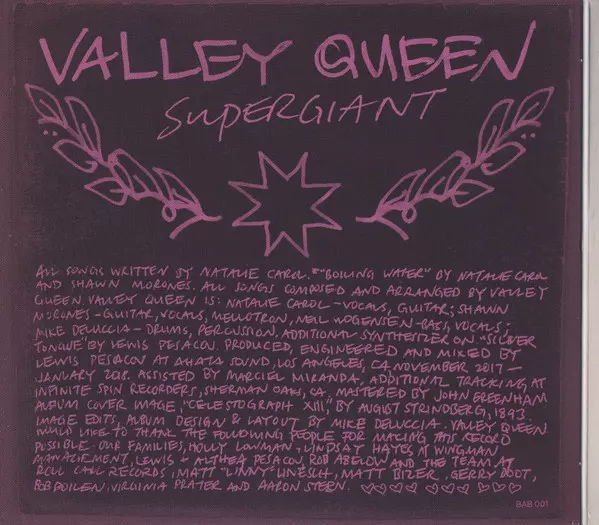 VALLEY QUEEN
SUPERGIANT
ALL SONGS WRITTEN BY NATALIE CAROL. *"BOILING WATER" BY NATALIE CAROL
AND SHAWN MORONES. ALL SONGS COMPOSED AND ARRANGED BY VALLEY
QUEEN. VALLEY QUEEN IS: NATALIE CAROL - VOCALS, GUITAR; SHAWN
MORONES - GUITAR, VOCALS, MELLOTRON, NEIL WOGENSEN - BASS, VOCALS;
MIKE DELUCCIA - DRUMS, PERCUSSION. ADDITIONAL SYNTHESIZER ON "SILVER
TONGUE" BY LEWIS PESACOV. PRODUCED, ENGINEERED AND MIXED BY
LEWIS PESACOV AT AHATA SOUND, LOS ANGELES, CA NOVEMBER 2017 -
JANUARY 2018. ASSISTED BY MARCIEL MIRANDA, ADDITIONAL TRACKING AT
INFINITE SPIN RECORDERS, SHERMAN OAKS, CA. MASTERED BY JOHN GREENHAM
ALBUM COVER IMAGE, "CELESTOGRAPH XIII," BY AUGUST STRINDBERG, 1893.
IMAGE EDITS, ALBUM DESIGN & LAYOUT BY MIKE DELUCCIA. VALLEY QUEEN
WOULD LIKE TO THANK THE FOLLOWING PEOPLE FOR MAKING THIS RECORD
POSSIBLE: OUR FAMILIES, HOLLY LOWMAN, LINDSAY HAYES AT WINGMAN
MANAGEMENT, LEWIS + ALTHEA PESACOV, ROB ABELOW AND THE TEAM AT
ROLL CALL RECORDS, MATT "LINNY" LINESCH, MATT BIZER, GERRY DOOT,
BOB BOILEN, VIRGINIA PRATER AND AARON STERN. ♡♡♡♡♡♡♡♡
BAB 001